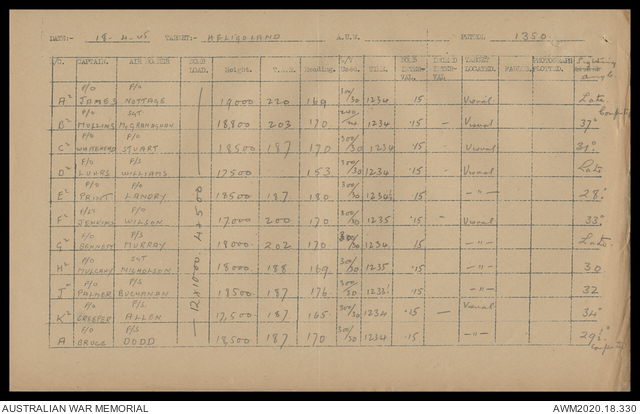 DATE:- 18-4-45 TARGET:- HELIGOLAND A.U.W. PETROL 1350.
A/C. CAPTAIN. AIR BOMBER BOMB LOAD. Height. T.A.S. Heading. W/V Used. TIME. BOMB INTERVAL. TARGET LOCATED. PHOTOGRAPH PLOTTED. Sighting angle
F/O F/O
A² JAMES NOTTAGE 19000 220 169 300/30 1234 .15 Visual Late Computer
F/O SGT
B² MULLINS McGRANAGHAN 18,800 203 170 1234 .15 - Visual 37°
F/O F/O
C² STUART 18500 187 170 300/30 1234 .15 Visual 31°
F/O F/S
D² LUHRS WILLIAMS 17500 153 300/30 1234 .15 Visual Late
F/O F/O
E² PRINT LANDRY 18500 187 180 300/30 .15 -"- 28°
F/O
F² JENKINS WILSON 17,000 200 170 300/30 1235 .15 - Visual 33°
F/O F/S
G² MURRAY 18000 202 170 1234 .15 -"- Late
F/O SGT
H² MULCAHY NICHOLSON 18000 188 169 300/30 1235 .15 -"- 30
F/O F/S
J² PALMER BUCHANAN 18500 187 176 300/30 .15 -"- 32
F/O F/S
K² CREEPER ALLEN 17,500 187 165 300/30 1234 .15 - Visual 34°
F/O F/S
A BRUCE DODD 18,500 187 170 300/30 1234 .15 -"- 29½° Computer
AUSTRALIAN WAR MEMORIAL AWM2020.18.330